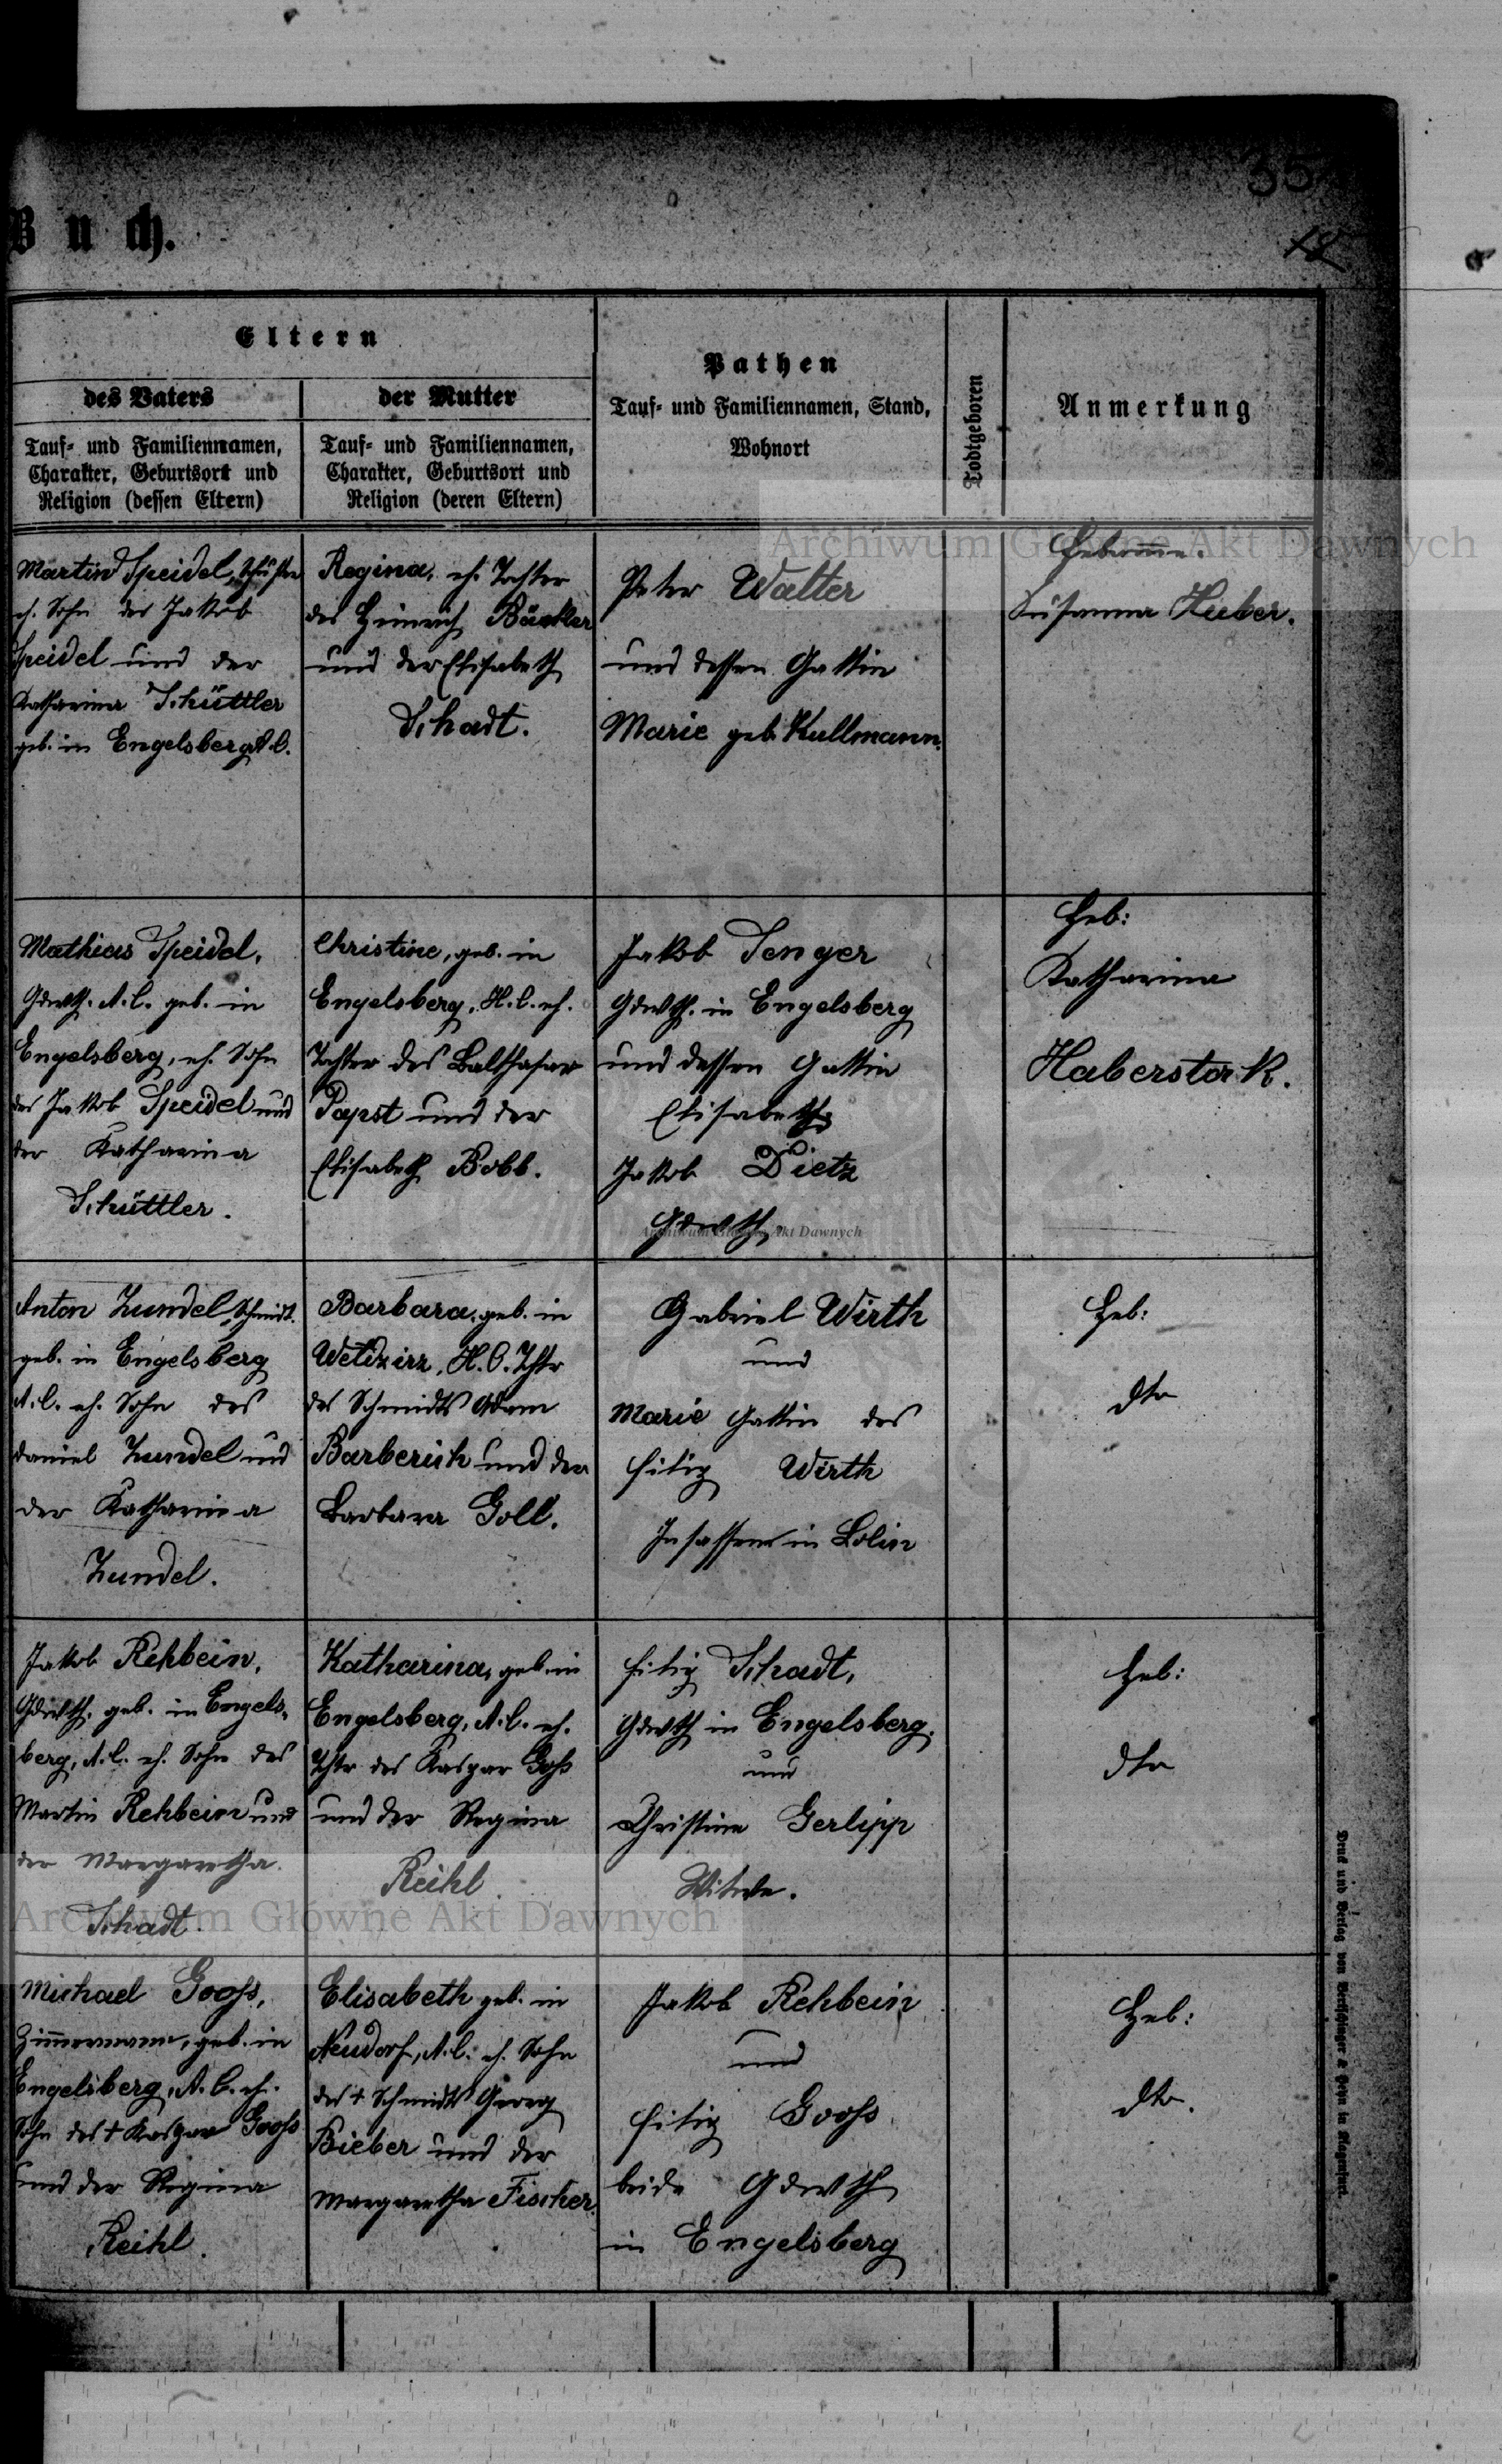 35
12
Buch.
Eltern
des Vaters
Tauf- und Familiennamen,
Charakter, Geburtsort und
Religion (dessen Eltern)
der Mutter
Tauf- und Familiennamen,
Charakter, Geburtsort und
Religion (deren Eltern)
Pathen
Tauf- und Familiennamen, Stand,
Wohnort
Todtgeboren
Anmerkung
Martin Speidel,
eh. Sohn des Jakob
Speidel und der
Katharina Schüttler
geb. in Engelsberg A.C.
Regina, eh. Tochter
des Heinrich Bäcker
und der Elisabeth
Schadt.
Peter Walter
und dessen Gattin
Marie geb. Kullmann.
Hebamme.
Susanna Huber.
Mathias Speidel,
Gdwth. A.C. geb. in
Engelsberg, eh. Sohn
des Jakob Speidel und
der Katharina
Schüttler.
Christine, geb. in
Engelsberg, H.C. eh.
Tochter des Balthasar
Papst und der
Elisabeth Bobb.
Jakob Senger
Gdwth. in Engelsberg
und dessen Gattin
Elisabeth
Jakob Dietz
Gdwth.
Heb:
Katharina
Haberstock.
Anton Zundel, Schmidt.
geb. in Engelsberg
A.C. eh. Sohn des
Daniel Zundel und
der Katharina
Zundel.
Barbara, geb. in
H.C. Thtr
des Schmidts Adam
Barberich und der
Barbara Goll.
Gabriel Wirth
und
Marie Gattin des
Filip Wirth
Insassen in Bolin
Heb:
dto
Jakob Rehbein,
Gdwth. geb. in Engels-
berg, A.C. eh. Sohn des
Martin Rehbein und
der Margaretha
Schadt.
Katharina, geb. in
Engelsberg, A.C. eh.
Thtr des Kaspar Goß
und der Regina
Reihl
Filip Schadt,
Gdwth in Engelsberg.
und
Christine Gerlipp
Witwe.
Heb:
dto
Michael Gooß,
Zimmermann, geb. in
Engelsberg, A.C. eh.
Sohn des + Kaspar Gooß
und der Regina
Reihl.
Elisabeth geb. in
Neudorf, A.C. eh. Sohn
des + Schmidts Georg
Bieber und der
Margaretha Fischer.
Jakob Rehbein
und
Filip Gooß
beide Gdwth
in Engelsberg
Heb:
dto.
Druck und Verlag von Bertschinger & Heyn in Klagenfurt.
Archiwum Główne Akt Dawnych
Archiwum Główne Akt Dawnych
Archiwum Główne Akt Dawnych